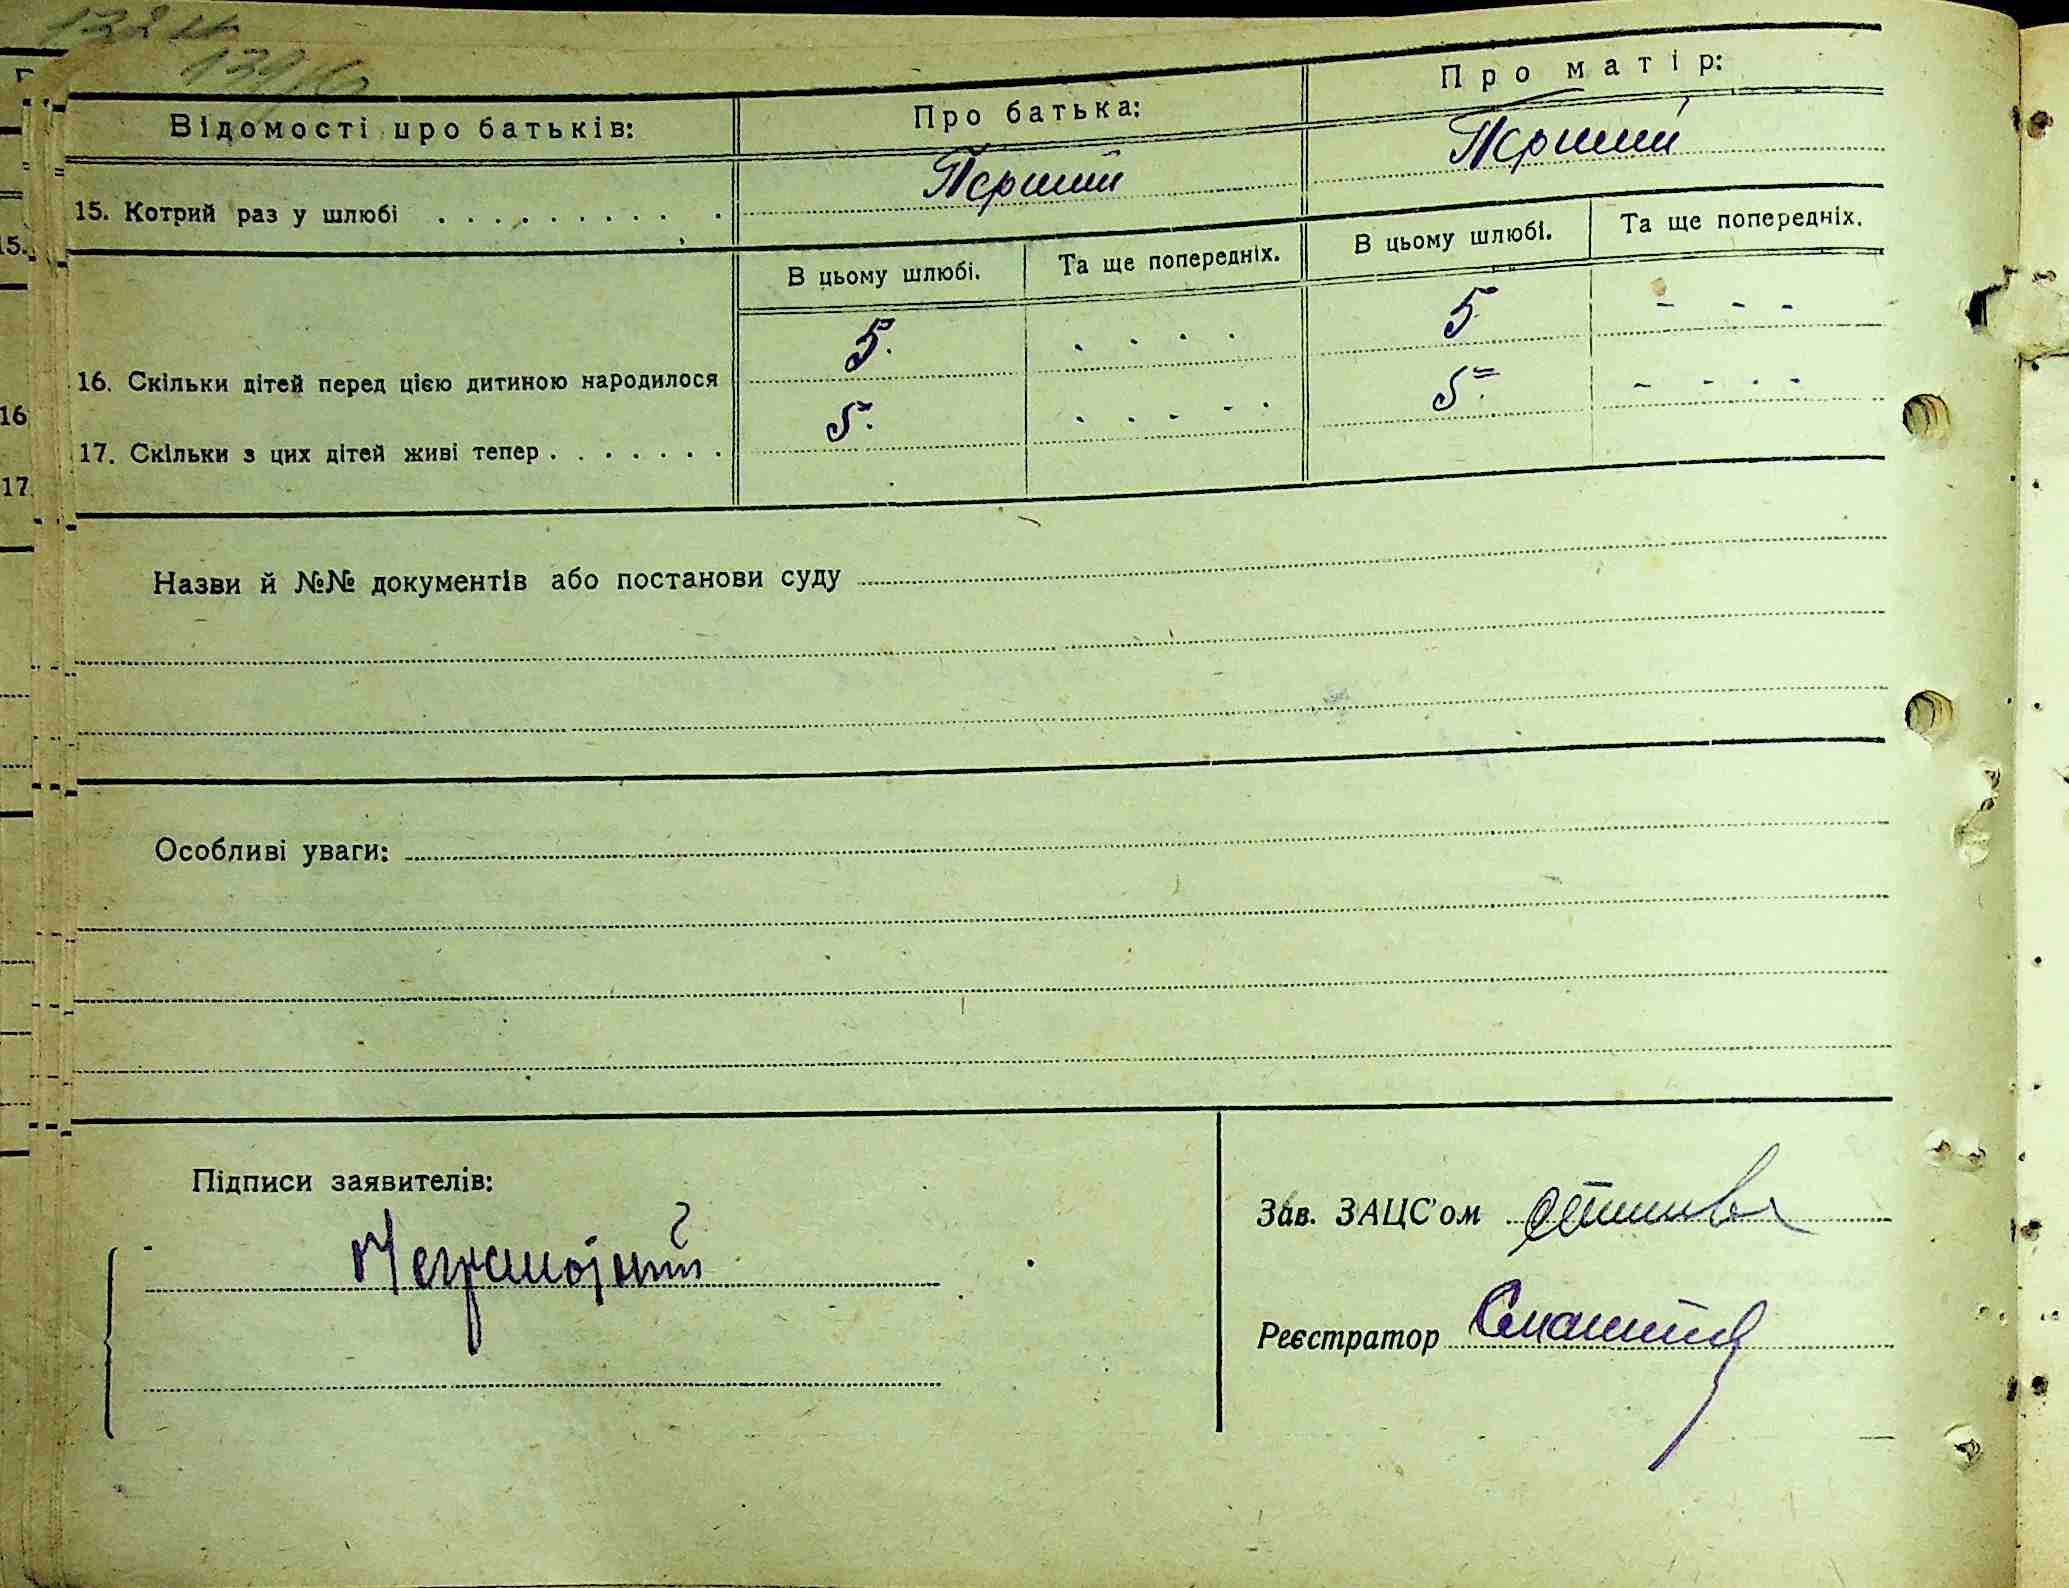 Відомості про батьків:
Про батька:
Про матір:
15. Котрий раз у шлюбі . . . . . . . . .
Перший
Перший
В цьому шлюбі.
Та ще попередніх.
В цьому шлюбі.
Та ще попередніх.
16. Скільки дітей перед цією дитиною народилося
5.
- - - -
5
- - -
17. Скільки з цих дітей живі тепер . . . . . . .
5.
- - - - -
5.
- - - -
Назви й №№ документів або постанови суду
Особливі уваги:
Підписи заявителів:
Неграмотний
Зав. ЗАЦС'ом
Реєстратор
15.
16
17